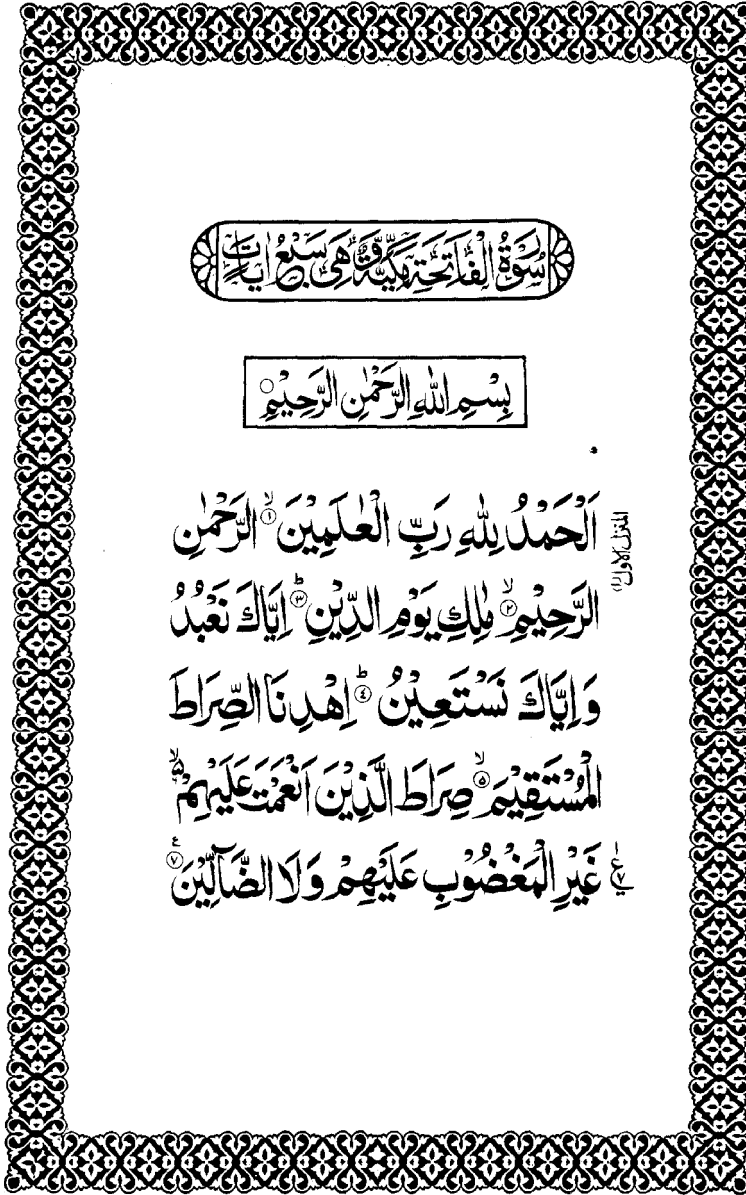 سُوْرَةُ الْفَاتِحَةِ مَكِّيَّةٌ وَّهِیَ سَبْعُ اٰيَاتٍ
بِسْمِ اللّٰهِ الرَّحْمٰنِ الرَّحِيْمِ○
اَلْحَمْدُ لِلّٰهِ رَبِّ الْعٰلَمِيْنَ ۙ﴿۱﴾ الرَّحْمٰنِ
المنزل الاول (۱)
الرَّحِيْمِ ۙ﴿۲﴾ مٰلِكِ يَوْمِ الدِّيْنِ ؕ﴿۳﴾ اِيَّاكَ نَعْبُدُ
وَاِيَّاكَ نَسْتَعِيْنُ ؕ﴿٤﴾ اِهْدِنَا الصِّرَاطَ
الْمُسْتَقِيْمَ ۙ﴿۵﴾ صِرَاطَ الَّذِيْنَ اَنْعَمْتَ عَلَيْهِمْ ۙ
غَيْرِ الْمَغْضُوْبِ عَلَيْهِمْ وَلَا الضَّآلِّيْنَ ﴿۷﴾